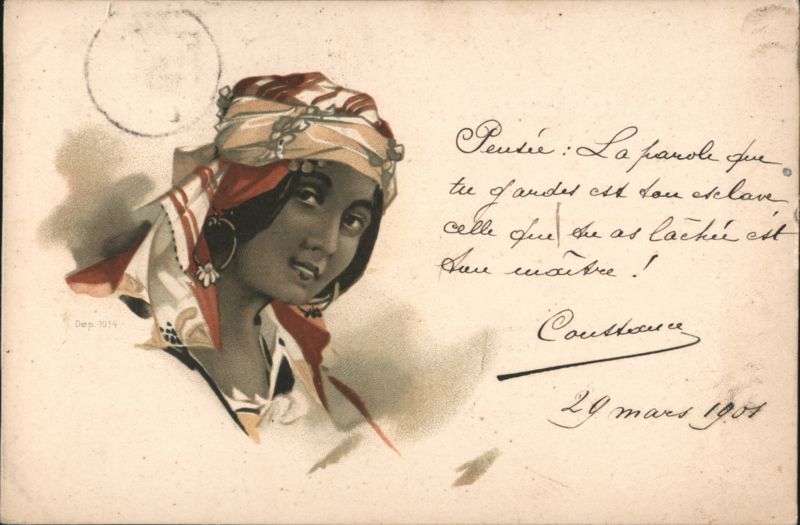 Pensée : La parole que
tu gardes est ton esclave
celle que tu as lâchée est
ton maître !
Constance
29 mars 1901
Dep. 1014